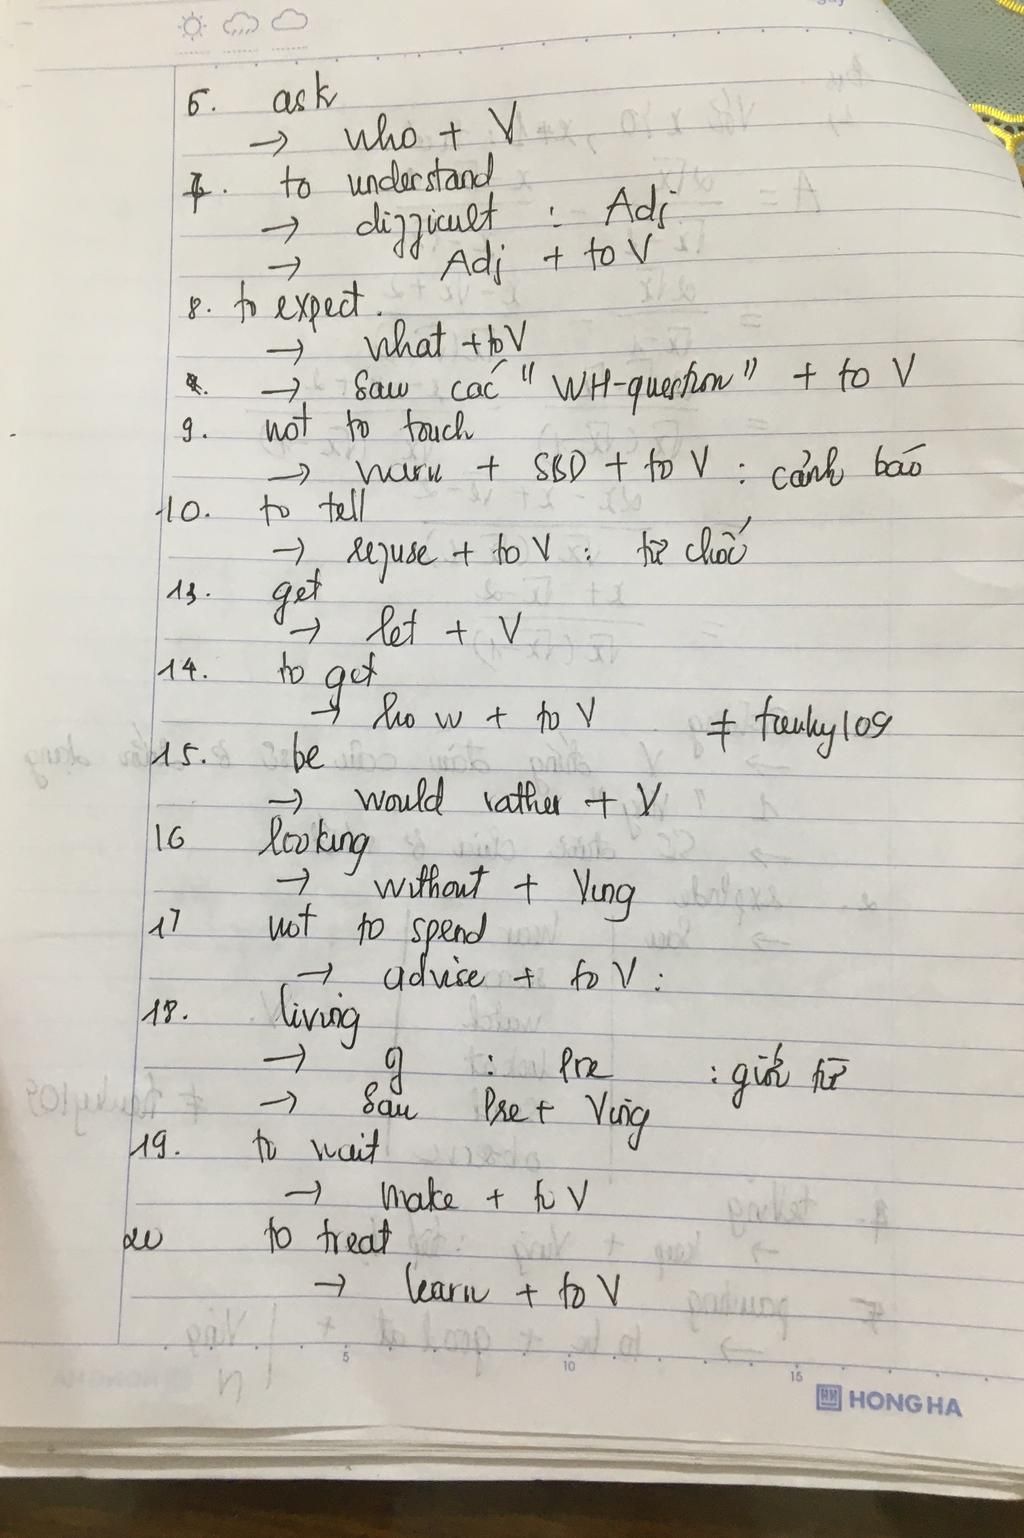 6. ask
→ who + V
7. to understand
→ difficult : Adj
→ Adj + to V
8. to expect.
→ what + to V
→ Sau các "WH-question" + to V
9. not to touch
→ warn + SBD + to V : cảnh báo
10. to tell
→ refuse + to V : từ chối
13. get
→ let + V
14. to get
→ how + to V ≠ trenky109
15. be
→ would rather + V
16 looking
→ without + Ving
17 not to spend
→ advise + to V :
18. living
→ of : Pre : giới từ
→ Sau Pre + Ving
19. to wait
→ make + to V
20 to treat
→ learn + to V
5 10 15
HONG HA